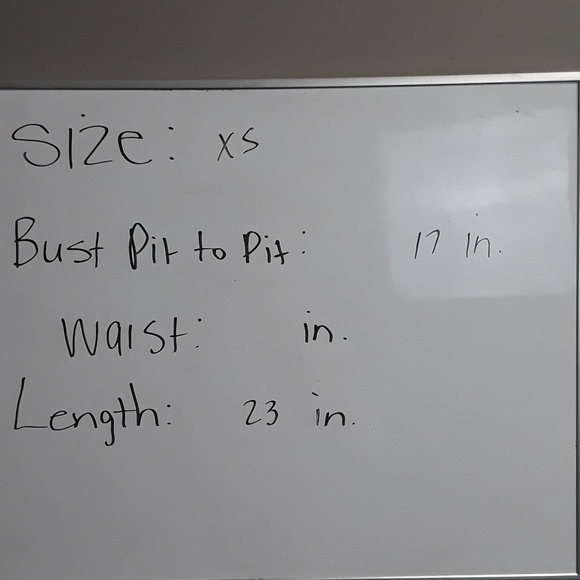 Size: XS
Bust Pit to Pit: 17 in.
Waist: in.
Length: 23 in.